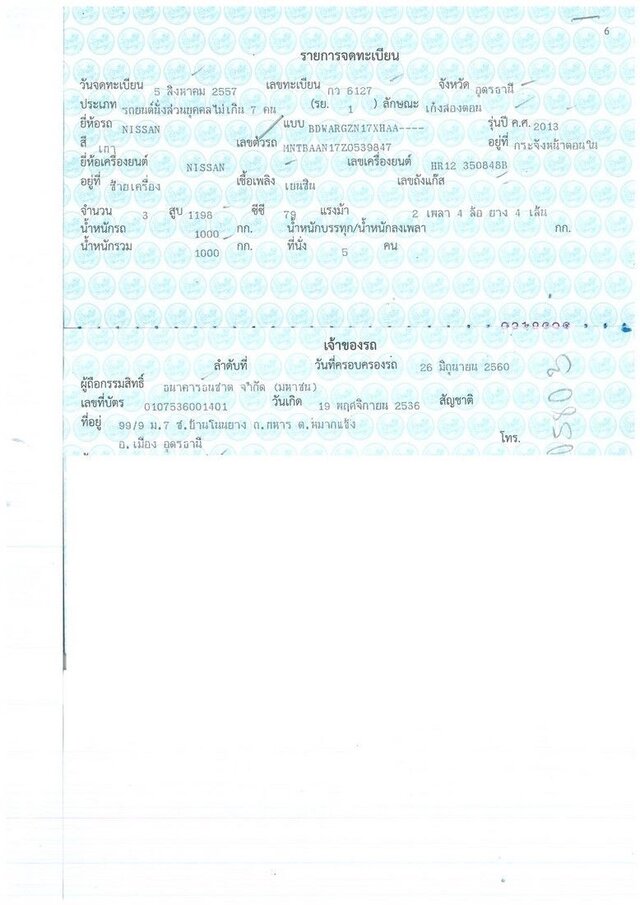 6
รายการจดทะเบียน
วันจดทะเบียน 5 สิงหาคม 2557 เลขทะเบียน กว 6127 จังหวัด อุดรธานี
ประเภท รถยนต์นั่งส่วนบุคคลไม่เกิน 7 คน (รย. 1 ) ลักษณะ เก๋งสองตอน
ยี่ห้อรถ NISSAN แบบ BDWARGZN17XHAA---- รุ่นปี ค.ศ. 2013
สี เทา เลขตัวรถ MNTBAAN17Z0539847 อยู่ที่ กระจังหน้าตอนใน
ยี่ห้อเครื่องยนต์ NISSAN เลขเครื่องยนต์ HR12 350848B
อยู่ที่ ซ้ายเครื่อง เชื้อเพลิง เบนซิน เลขถังแก๊ส
จำนวน 3 สูบ 1198 ซีซี 79 แรงม้า 2 เพลา 4 ล้อ ยาง 4 เส้น
น้ำหนักรถ 1000 กก. น้ำหนักบรรทุก/น้ำหนักลงเพลา กก.
น้ำหนักรวม 1000 กก. ที่นั่ง 5 คน
เจ้าของรถ
ลำดับที่ วันที่ครอบครองรถ 26 มิถุนายน 2560
ผู้ถือกรรมสิทธิ์ ธนาคารธนชาต จำกัด (มหาชน)
เลขที่บัตร 0107536001401 วันเกิด 19 พฤศจิกายน 2536 สัญชาติ
ที่อยู่ 99/9 ม.7 ซ.บ้านโนนยาง ถ.ทหาร ต.หมากแข้ง
โทร.
อ.เมือง อุดรธานี